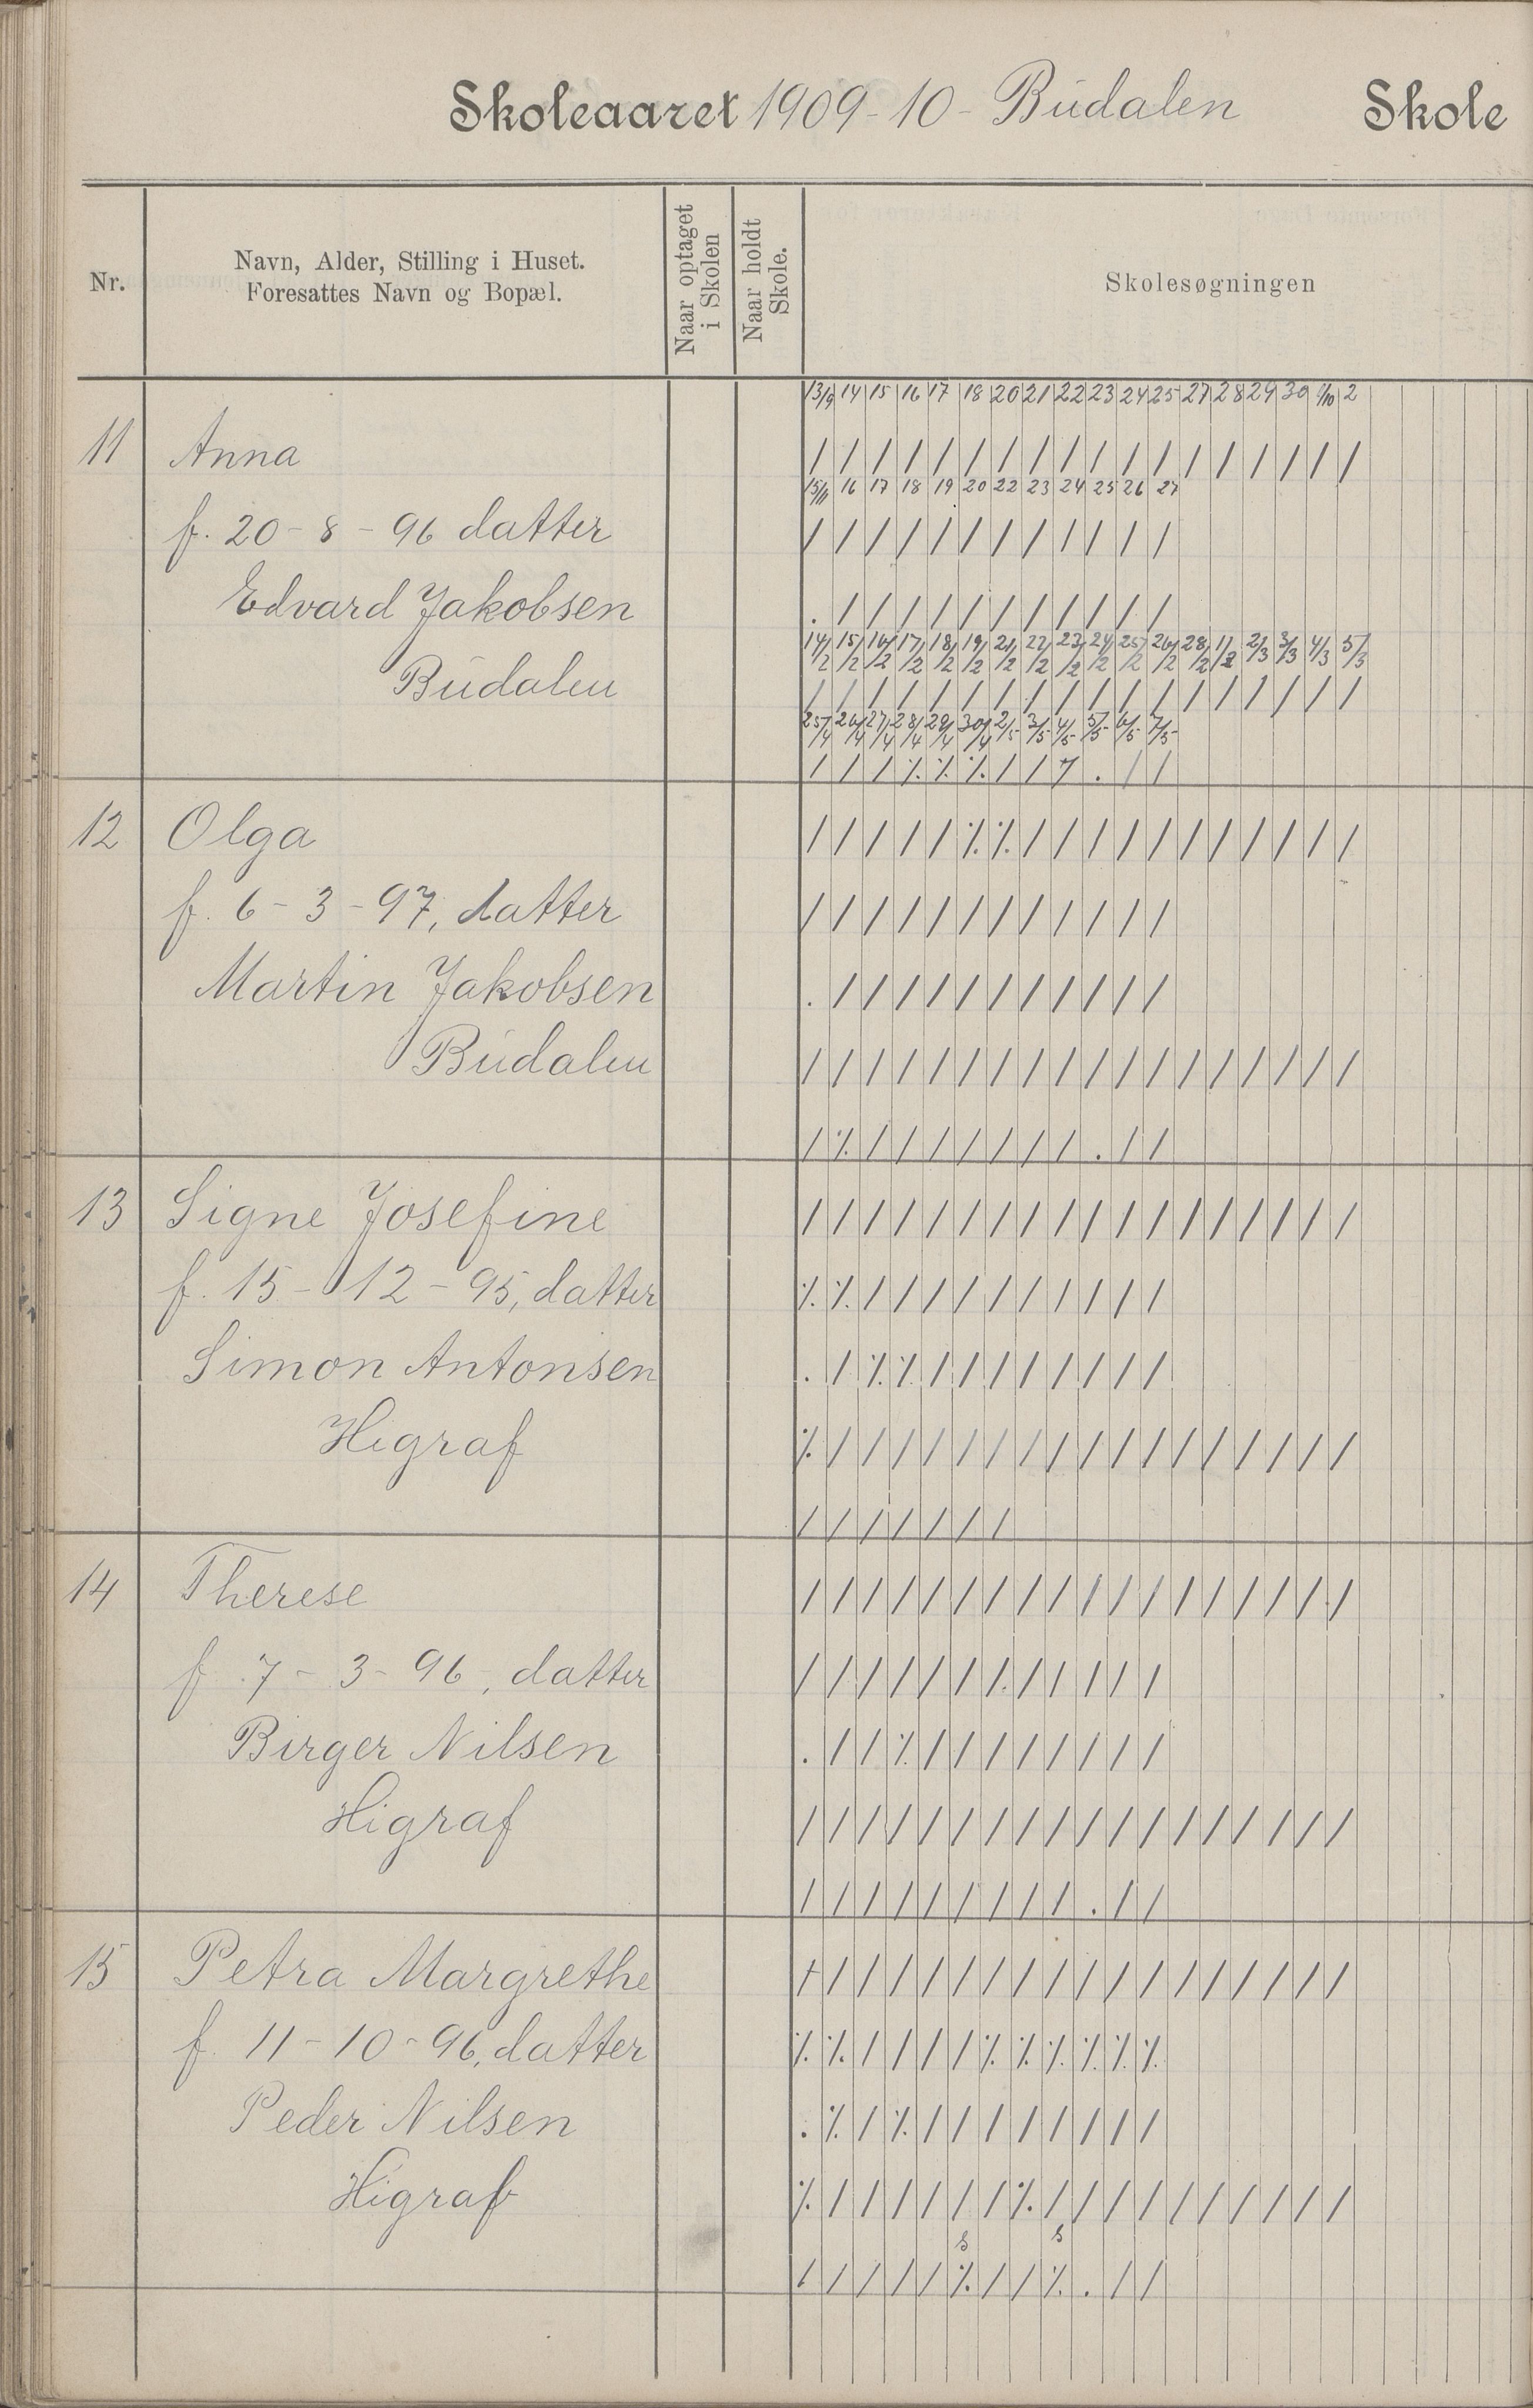 Skoleaaret 1909-10- Budalen Skole
Nr.
Navn, Alder, Stilling i Huset.
Foresattes Navn og Bopæl.
Naar optaget
i Skolen
Naar holdt
Skole.
Skolesøgningen
13/9 14 15 16 17 18 20 21 22 23 24 25 27 28 29 30 1/10 2
11 Anna
/ / / / / / / / / / / / / / / / / /
15/11 16 17 18 19 20 22 23 24 25 26 27
f. 20-8-96 datter
/ / / / / / / / / / / /
Edvard Jakobsen
. / / / / / / / / / / /
14/2 15/2 16/2 17/2 18/2 19/2 21/2 22/2 23/2 24/2 25/2 26/2 28/2 2/3 3/3 4/3 5/3
Budalen
/ / / / / / / / / / / / / / / / / /
25/4 26/4 27/4 28/4 29/4 30/4 2/5 3/5 4/5 5/5 6/5 7/5
/ / / ٪ ٪ ٪ / / 7 . / /
12 Olga
/ / / / / ٪ ٪ / / / / / / / / / / /
f. 6-3-97, datter
/ / / / / / / / / / / /
Martin Jakobsen
. / / / / / / / / / / /
Budalen
/ / / / / / / / / / / / / / / / / /
/ ٪ / / / / / / / . / /
13 Signe Josefine
/ / / / / / / / / / / / / / / / / /
f. 15-12-95, datter
٪ ٪ / / / / / / / / / /
Simon Antonsen
. / ٪ ٪ / / / / / / / /
Higraf
٪ / / / / / / / / / / / / / / / / /
/ / / / / / /
14 Therese
/ / / / / / / / / / / / / / / / / /
f. 7-3-96, datter
/ / / / / / / / / / / /
Birger Nilsen
. / / ٪ / / / / / / / /
Higraf
/ / / / / / / / / / / / / / / / / /
/ / / / / / / / / . / /
15 Petra Margrethe
/ / / / / / / / / / / / / / / / / /
f. 11-10-96, datter
٪ ٪ / / / / ٪ ٪ ٪ ٪ ٪ ٪
Peder Nilsen
. ٪ / ٪ / / / / / / / /
Higraf
٪ / / / / / / ٪ / / / / / / / / / /
s s
/ / / / / ٪ / / ٪ . / /